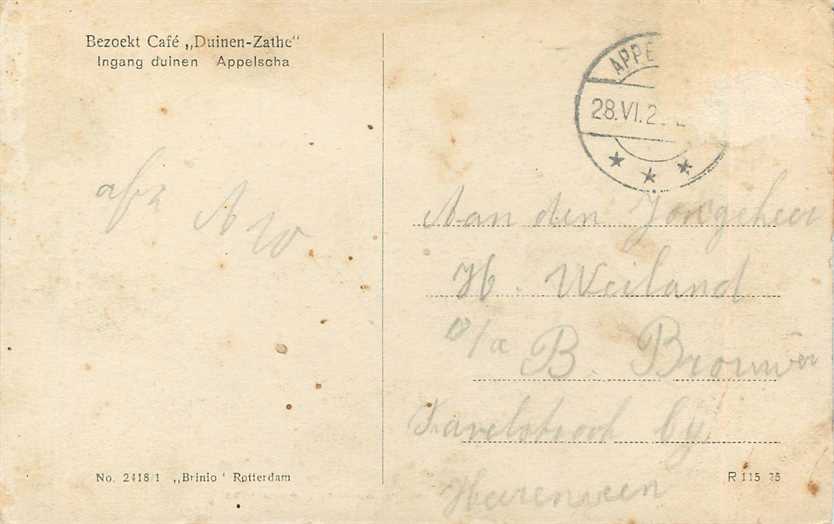 Bezoekt Café „Duinen-Zathe"
Ingang duinen Appelscha
APPE
28.VI.2
afz N W
Aan den Jongeheer
H. Weiland
p/a B. Brouwer
by
Heerenveen
No. 2418/1 „Brinio' Rotterdam
R 115 35